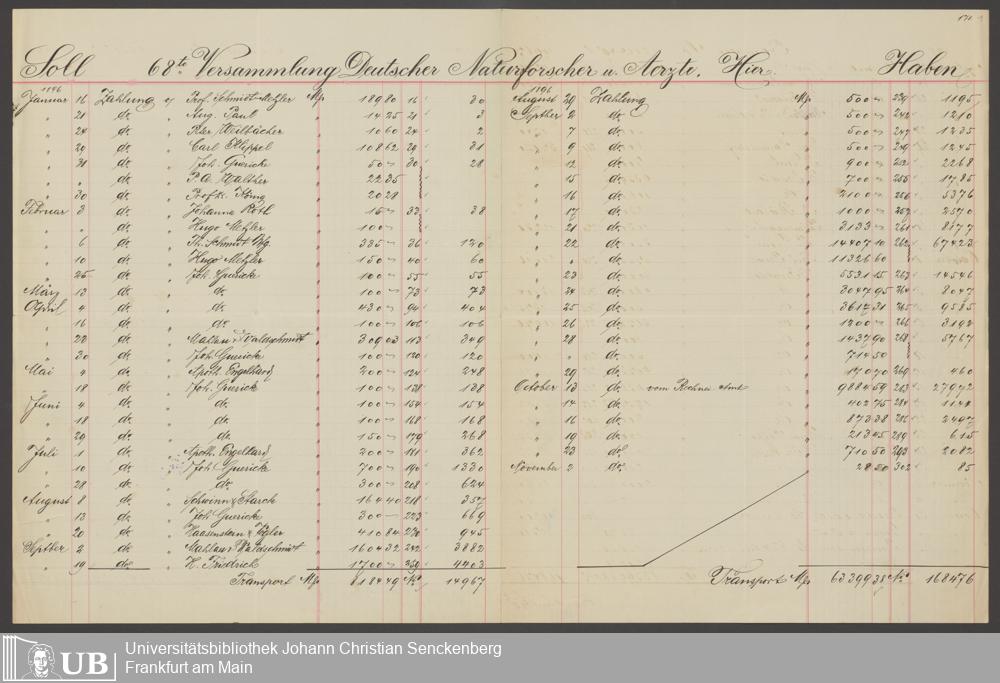 171.
Soll 68te Versammlung Deutscher Naturforscher u. Aerzte. Hier Haben
1896
Januar 16 Zahlung Prof. Schmidt-Metzler 189 80 16 30
" 21 do. " Aug. Paul 14 25 21 3
" 24 do. " 10 60 24 2
" 29 do. " Carl Klippel 108 62 29 31
" 31 do. " Joh. Guericke 50 – 30 28
" " do. " P. A. Walther 22 35
" 30 do. " 20 28
Februar 3 do. " Johanna Roth
" " do. " Hugo Metzler 100 –
" 6 do. " Th. Schmidt 335 – 36 120
" 10 do. " Hugo Metzler 150 – 40 60
" 25 do. " Joh. Guericke 100 – 55 55
März 13 do. " do. 100 – 73 73
April 4 do. " do. 430 – 94 404
" 16 do. " do. 100 – 106 106
" 22 do. " Mahlau & Waldschmidt 309 03 113 349
" 30 do. " Joh. Guericke 100 – 120 120
Mai 4 do. " Apoth. Engelhard 200 – 124 248
" 18 do. " Joh. Guericke 100 – 138 138
Juni 4 do. " do. 100 – 154 154
" 18 do. " do. 100 – 168 168
" 29 do. " do. 150 – 179 268
Juli 1 do. " Apoth. Engelhard 200 – 181 362
" 10 do. " Joh. Guericke 700 – 190 1330
" 28 do. " do. 300 – 208 624
August 8 do. " Schwinn & Starck 164 40 218 357
" 13 do. " Joh. Guericke 300 – 223 669
" 20 do. " Haasenstein & Vogler 410 84 230 945
Septber 2 do. " Mahlau & Waldschmidt 1604 32 242 3882
" 19 do. " H. Friedrich 1700 – 259 4403
Transport 8184 49 No. 14967
1896
August 29 Zahlung 500 – 239 1195
Septber 2 do. 500 – 242 1210
" 7 do. 500 – 247 1235
" 9 do. 500 – 249 1245
" 12 do. 900 – 252 2268
" 15 do. 700 – 255 1785
" 16 do. 2100 – 256 5376
" 17 do. 1000 – 257 2570
" 21 do. 3133 – 261 8177
" 22 do. 14407 10 262 67423
" " do. 11326 60
" 23 do. 5531 15 263 14546
" 24 do. 3047 95 264 8047
" 25 do. 3617 31 265 9585
" 26 do. 1200 – 266 3192
" 28 do. 1437 90 268 5767
" " do. 714 50
" 29 do. 170 70 269 460
October 13 do. vom Rechnei Amt 9884 59 283 27972
" 14 do. 402 75 284 1144
" 16 do. 873 38 286 2497
" 19 do. 213 45 289 615
" 23 do. 710 50 293 2082
November 2 do. 28 50 302 85
Transport 63399 38 No. 168476
UB
Universitätsbibliothek Johann Christian Senckenberg
Frankfurt am Main